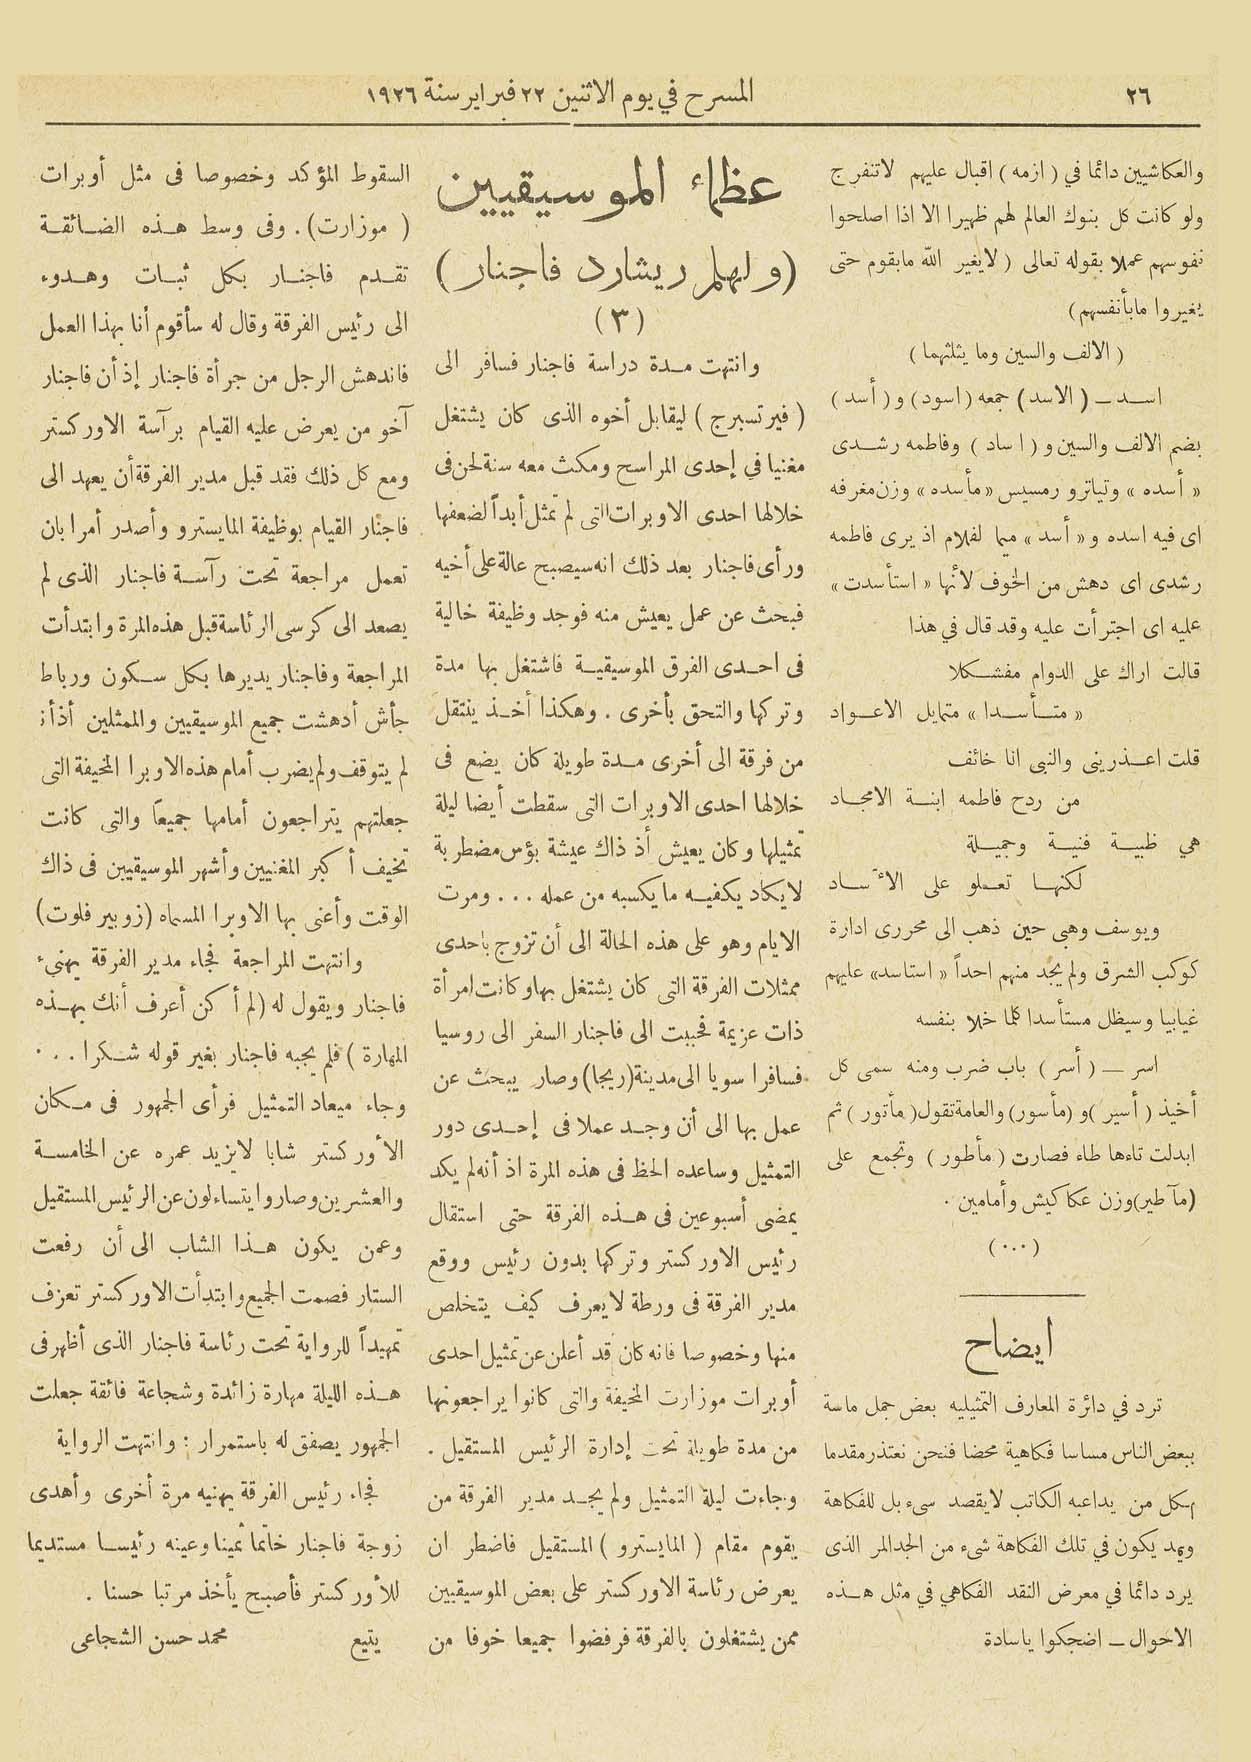 ٢٦
المسرح في يوم الاثنين ٢٢ فبراير سنة ١٩٢٦
والعكاشيين دائما في ( ازمه ) اقبال عليهم لاتنفرج
ولو كانت كل بنوك العالم لهم ظهيرا الا اذا اصلحوا
نفوسهم عملا بقوله تعالى ( لايغير الله مابقوم حتى
يغيروا مابأنفسهم )
( الالف والسين وما يثلثهما )
اسد — ( الاسد ) جمعه ( اسود ) و ( أسد )
بضم الالف والسين و ( اساد ) وفاطمه رشدى
« أسده » وتياترو رمسيس « مأسده » وزن مغرفه
اى فيه اسده و « أسد » ميما لفلام اذ يرى فاطمه
رشدى اى دهش من الخوف لأنها « استأسدت »
عليه اى اجترأت عليه وقد قال في هذا
قالت اراك على الدوام مفشكلا
« متأسدا » متمايل الاعواد
قلت اعذرينى والنبى انا خائف
من ردح فاطمه ابنة الامجاد
هي ظبية فنية وجميلة
لكنها تعلو على الآساد
ويوسف وهبى حين ذهب الى محررى ادارة
كوكب الشرق ولم يجد منهم احداً « استاسد » عليهم
غيابيا وسيظل مستأسدا كلما خلا بنفسه
اسر — ( أسر ) باب ضرب ومنه سمى كل
أخيذ ( أسير ) و ( مأسور ) والعامة تقول ( مأتور ) ثم
ابدلت تاءها طاء فصارت ( مأطور ) وتجمع على
( مآطير ) وزن عكاكيش وأمامين .
( ٠٠٠ )
ايضاح
ترد في دائرة المعارف التمثيليه بعض جمل ماسة
ببعض الناس مساسا فكاهية محضا فنحن نعتذر مقدما
لكل من يداعبه الكاتب لايقصد سىء بل للفكاهة
وقد يكون في تلك الفكاهة شىء من الجد المر الذى
يرد دائما في معرض النقد الفكاهي في مثل هذه
الاحوال — اضحكوا ياسادة
عظماء الموسيقيين
( ولهلم ريشارد فاجنار )
( ٣ )
وانتهت مدة دراسة فاجنار فسافر الى
( فيرتسبرج ) ليقابل أخوه الذى كان يشتغل
مغنيا في إحدى المراسح ومكث معه سنة لحن فى
خلالها احدى الاوبرات التى لم تمثل أبداً لضعفها
ورأى فاجنار بعد ذلك انه سيصبح عالة على أخيه
فبحث عن عمل يعيش منه فوجد وظيفة خالية
فى احدى الفرق الموسيقية فاشتغل بها مدة
وتركها والتحق بأخرى . وهكذا أخذ ينتقل
من فرقة الى أخرى مدة طويلة كان يضع فى
خلالها احدى الاوبرات التى سقطت أيضا ليلة
تمثيلها وكان يعيش أذ ذاك عيشة بؤس مضطربة
لا يكاد يكفيه ما يكسبه من عمله ... ومرت
الايام وهو على هذه الحالة الى أن تزوج باحدى
ممثلات الفرقة التى كان يشتغل بها وكانت امرأة
ذات عزيمة فحببت الى فاجنار السفر الى روسيا
فسافرا سويا الى مدينة ( ريجا ) وصار يبحث عن
عمل بها الى أن وجد عملا فى إحدى دور
التمثيل وساعده الحظ فى هذه المرة اذ أنه لم يكد
يمضى أسبوعين فى هذه الفرقة حتى استقال
رئيس الاوركستر وتركها بدون رئيس ووقع
مدير الفرقة فى ورطة لا يعرف كيف يتخلص
منها وخصوصا فانه كان قد أعلن عن تمثيل احدى
أوبرات موزارت المخيفة والتى كانوا يراجعونها
من مدة طويلة تحت إدارة الرئيس المستقيل .
وجاءت ليلة التمثيل ولم يجد مدير الفرقة من
يقوم مقام ( المايسترو ) المستقيل فاضطر ان
يعرض رئاسة الاوركستر على بعض الموسيقيين
ممن يشتغلون بالفرقة فرفضوا جميعا خوفا من
السقوط المؤكد وخصوصا فى مثل أوبرات
( موزارت ) . وفى وسط هذه الضائقة
تقدم فاجنار بكل ثبات وهدوء
الى رئيس الفرقة وقال له سأقوم أنا بهذا العمل
فاندهش الرجل من جرأة فاجنار إذ أن فاجنار
آخو من يعرض عليه القيام برآسة الاوركستر
ومع كل ذلك فقد قبل مدير الفرقة أن يعهد الى
فاجنار القيام بوظيفة المايسترو وأصدر أمرا بان
تعمل مراجعة تحت رآسة فاجنار الذى لم
يصعد الى كرسى الرئاسة قبل هذه المرة وابتدأت
المراجعة وفاجنار يديرها بكل سكون ورباط
جأش أدهشت جميع الموسيقيين والممثلين أذ أنه
لم يتوقف ولم يضرب أمام هذه الاوبرا المخيفة التى
جعلتهم يتراجعون أمامها جميعاً والتى كانت
تخيف أكبر المغنيين وأشهر الموسيقيين فى ذاك
الوقت وأعنى بها الاوبرا المسماه ( زوبير فلوت )
وانتهت المراجعة فجاء مدير الفرقة يهنىء
فاجنار ويقول له ( لم أكن أعرف أنك بهذه
المهارة ) فلم يجبه فاجنار بغير قوله شكرا ...
وجاء ميعاد التمثيل فرأى الجمهور فى مكان
الأوركستر شابا لايزيد عمره عن الخامسة
والعشرين وصاروا يتساءلون عن الرئيس المستقيل
وعمن يكون هذا الشاب الى أن رفعت
الستار فصمت الجميع وابتدأت الاوركستر تعزف
تمهيداً للرواية تحت رئاسة فاجنار الذى أظهر فى
هذه الليلة مهارة زائدة وشجاعة فائقة جعلت
الجمهور يصفق له باستمرار : وانتهت الرواية
فجاء رئيس الفرقة يهنيه مرة أخرى وأهدى
زوجة فاجنار خاتما ثمينا وعينه رئيسا مستديما
للأوركستر فأصبح يأخذ مرتبا حسنا .
يتبع محمد حسن الشجاعى